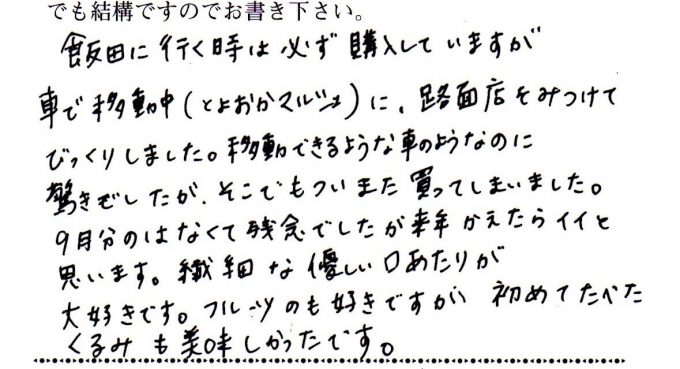 でも結構ですのでお書き下さい。
飯田に行く時は必ず購入していますが
車で移動中(とよおかマルシェ)に、路面店をみつけて
びっくりしました。移動できるような車のようなのに
驚きでしたが、そこでもついまた買ってしまいました。
9月分のはなくて残念でしたが来年かえたらイイと
思います。繊細な優しい口あたりが
大好きです。フルーツのも好きですが初めてたべた
くるみも美味しかったです。